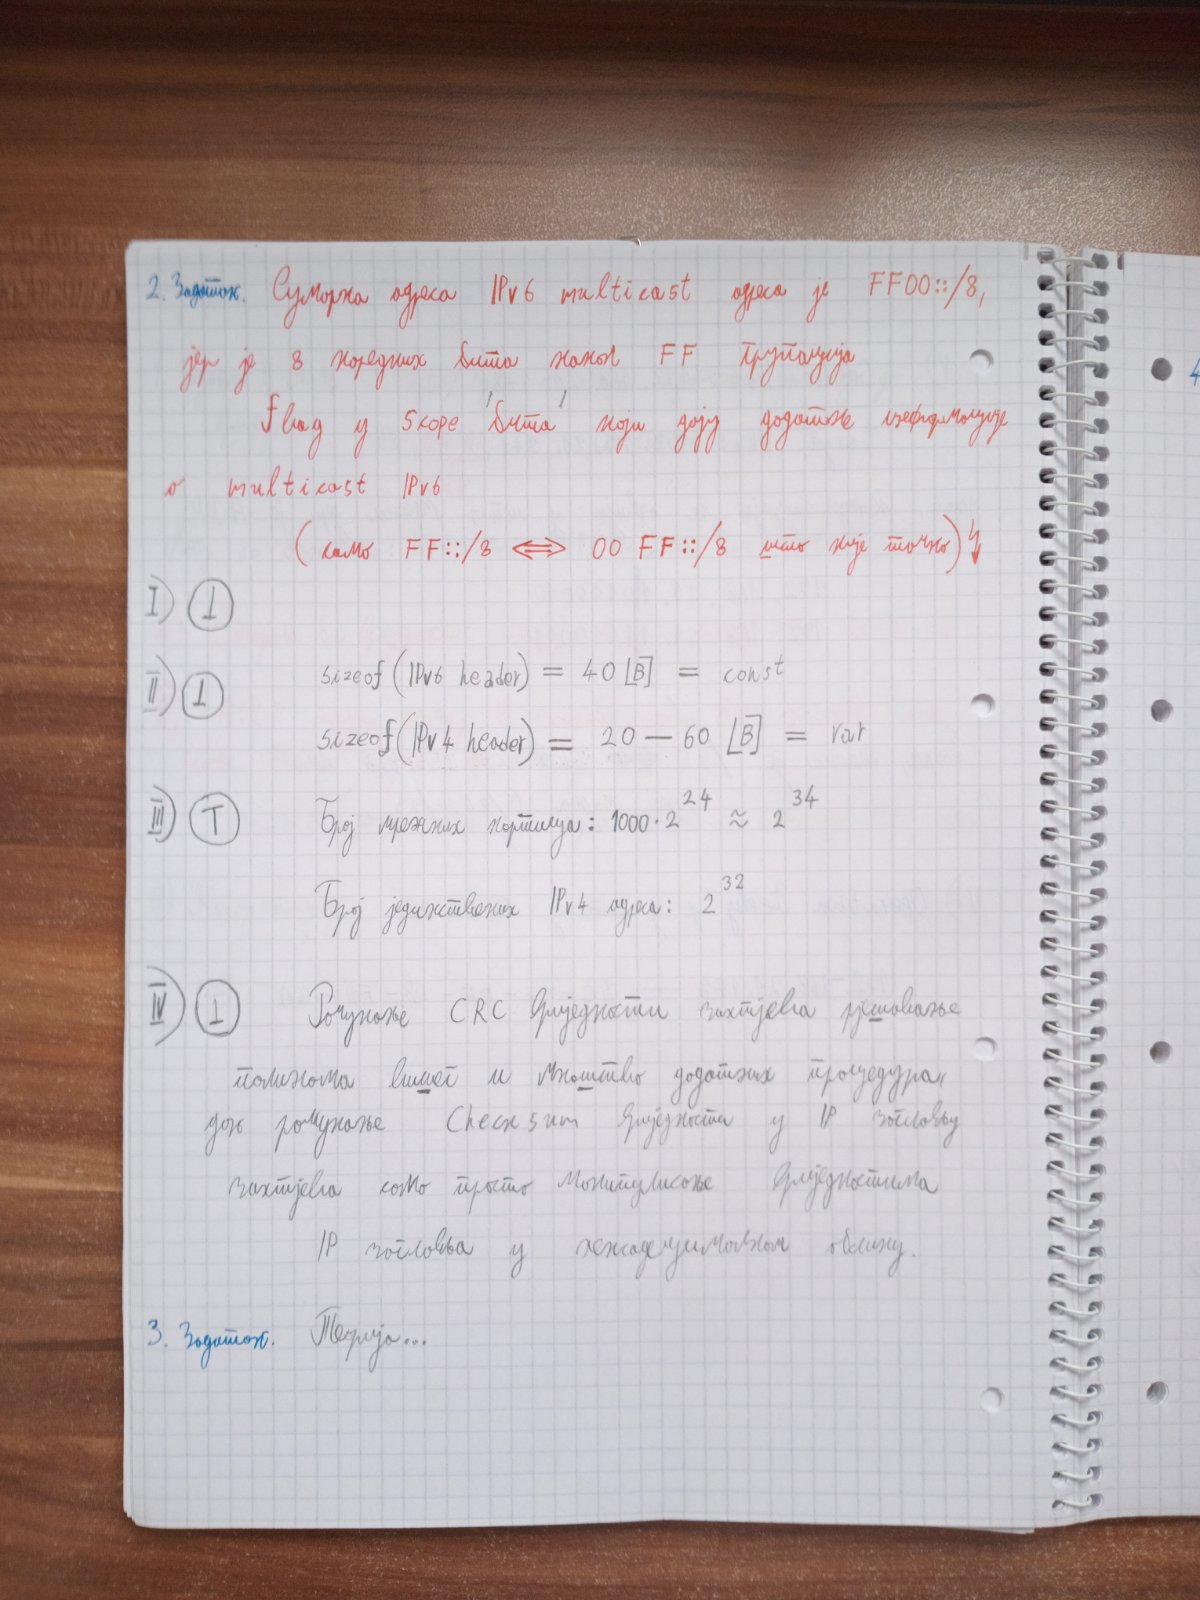 2. Задатак. Сумарна адреса IPv6 multicast адреса је FF00::/8,
јер је 8 наредних бита након FF
flag и scope бита који дају додатне информације
о multicast IPv6
(само FF::/8 ⟺ 00 FF::/8 што није тачно)
I) ⊥
II) ⊥ sizeof(IPv6 header) = 40 [B] = const
sizeof(IPv4 header) = 20 — 60 [B] = var
III) T Број мрежних картица: 1000·2^24 ≈ 2^34
Број јединствених IPv4 адреса: 2^32
IV) ⊥ Рачунање CRC вриједности захтјева рјешавање
полинома вишег и мноштво додатних процедура,
док рачунање Checksum вриједности у IP заглављу
захтјева само просто манипулисање вриједностима
IP заглавља у хексадецималном облику.
3. Задатак. Теорија...
4